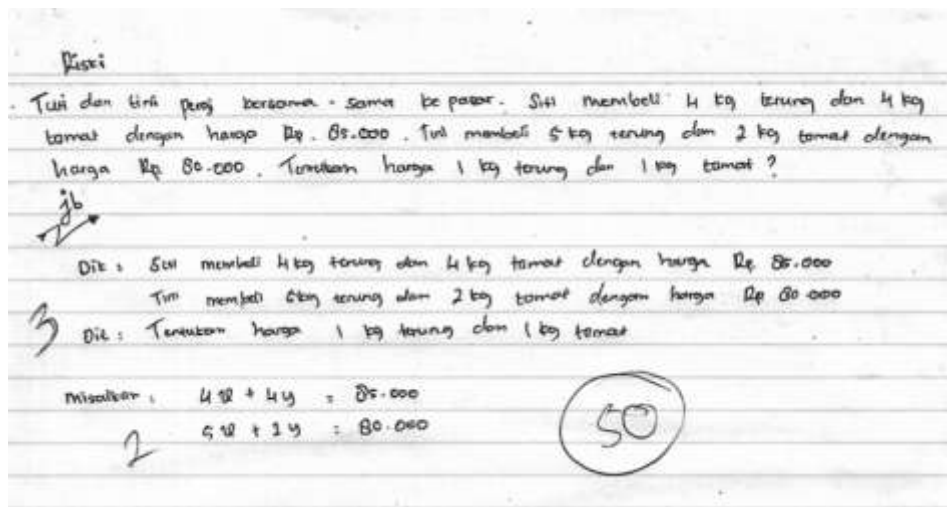 Riski
Tuti dan tini pergi bersama - sama ke pasar. Siti membeli 4 kg terung dan 4 kg
tomat dengan harga Rp. 85.000. Tini membeli 5 kg terung dan 2 kg tomat dengan
harga Rp 80.000. Tentukan harga 1 kg terung dan 1 kg tomat ?
jb
Dik : Siti membeli 4 kg terung dan 4 kg tomat dengan harga Rp 85.000
Tini membeli 5 kg terung dan 2 kg tomat dengan harga Rp 80.000
3 Dit : Tentukan harga 1 kg terung dan 1 kg tomat
misalkan : 4x + 4y = 85.000
5x + 2y = 80.000
2
50